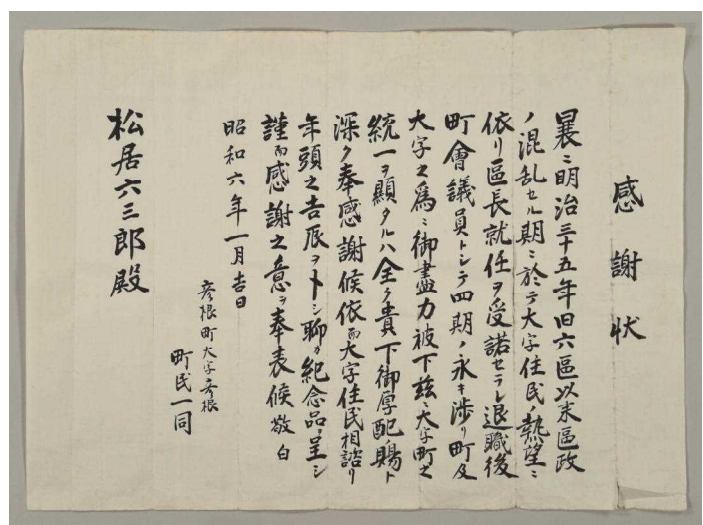 感謝状
曩ニ明治三十五年旧六區以末區政
ノ混乱セル期ニ於テ大字住民ノ熱望ニ
依リ區長就任ヲ受諾セラレ退職後
町會議員トシテ四期ノ永キ渉リ町及
大字之為ニ御盡力被下兹ニ大字町之
統一ヲ顕タルハ全ク貴下御厚配ノ賜ト
深ク奉感謝候依而大字住民相諮リ
年頭之吉辰ヲトシ聊カ紀念品ヲ呈シ
謹而感謝之意ヲ奉表候敬白
昭和六年一月吉日
彦根町大字彦根
町民一同
松居六三郎殿